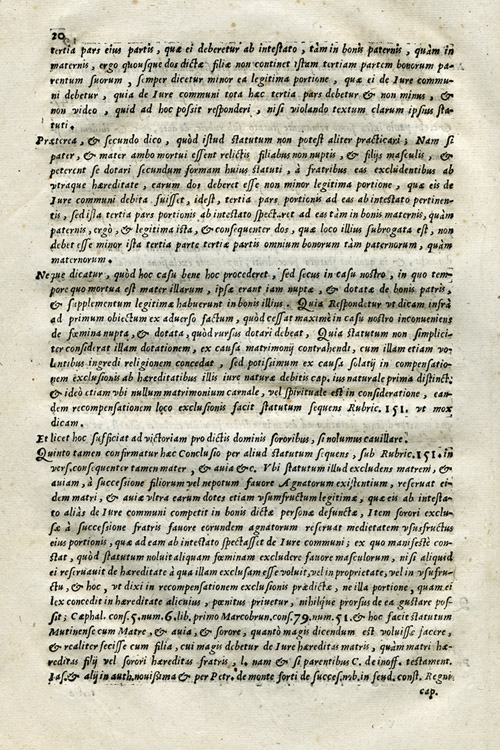 20
tertia pars eius partis, quæ ei deberetur ab intestato, tàm in bonis paternis, quàm in
maternis, ergo quousque dos dictæ filiæ non continet istam tertiam partem bonorum pa-
rentum suorum, semper dicetur minor ea legitima portione, quæ ei de Iure commu-
ni debetur, quia de Iure communi tota hæc tertia pars debetur & non minus, &
non video, quid ad hoc possit responderi, nisi violando textum clarum ipsius sta-
tuti.
Præterea, & secundo dico, quòd istud statutum non potest aliter practicari; Nam si
pater, & mater ambo mortui essent relictis filiabus non nuptis, & filijs masculis, &
peterent se dotari secundum formam huius statuti, à fratribus eas excludentibus ab
vtraque hæreditate, earum dos deberet esse non minor legitima portione, quæ eis de
Iure communi debita fuisset, idest, tertia pars portionis ad eas ab intestato pertinen-
tis, sed ista tertia pars portionis ab intestato spectaret ad eas tàm in bonis maternis, quàm
paternis, ergò, & legitima ista, & consequenter dos, quæ loco illius subrogata est, non
debet esse minor ista tertia parte tertiæ partis omnium bonorum tàm paternorum, quàm
maternorum.
Neque dicatur, quòd hoc casu bene hoc procederet, sed secus in casu nostro, in quo tem-
pore quo mortua est mater illarum, ipsæ erant iam nuptæ, & dotatæ de bonis patris,
& supplementum legitimæ habuerunt in bonis illius. Quia Respondetur vt dicam infrà
ad primum obiectum ex aduerso factum, quòd cessat maximè in casu nostro inconueniens
de fœmina nupta, & dotata, quòd rursus dotari debeat, Quia statutum non simplici-
ter considerat illam dotationem, ex causa matrimonij contrahendi, cum illam etiam vo-
lentibus ingredi religionem concedat, sed potissimum ex causa solatij in compensatio-
nem exclusionis ab hæreditatibus illis iure naturæ debitis cap. ius naturale prima distinct.
& ideò etiam vbi nullum matrimonium carnale, vel spirituale est in consideratione, ean-
dem recompensationem loco exclusionis facit statutum sequens Rubric. 151. vt mox
dicam.
Et licet hoc sufficiat ad victoriam pro dictis dominis sororibus, si nolumus cauillare.
Quinto tamen confirmatur hæc Conclusio per aliud statutum sequens, sub Rubric. 151. in
vers. consequenter tamen mater, & auia &c. Vbi statutum illud excludens matrem, &
auiam, à successione filiorum vel nepotum fauore Agnatorum existentium, reseruat ei-
dem matri, & auiæ vltra earum dotes etiam vsumfructum legitimæ, quæ eis ab intesta-
to aliàs de Iure communi competit in bonis dictæ personæ defunctæ, Item sorori exclu-
sæ à successione fratris fauore eorundem agnatorum reseruat medietatem vsusfructus
eius portionis, quæ ad eam ab intestato spectasset de Iure communi; ex quo manifestè con-
stat, quòd statutum noluit aliquam fœminam excludere fauore masculorum, nisi aliquid
ei reseruauit de hæreditate à qua illam exclusam esse voluit, vel in proprietate, vel in vsufru-
ctu, & hoc, vt dixi in recompensationem exclusionis prædictæ, ne illa portione, quam ei
lex concedit in hæreditate alicuius, pœnitus priuetur, nihilque prorsus de ea gustare pos-
sit; Cæphal. cons. 5. num. 6. lib. primo Marcobrun. cons. 79. num. 51. & hoc facit statutum
Mutinense cum Matre, & auia, & sorore, quantò magis dicendum est voluisse facere,
& realiter fecisse cum filia, cui magis debetur de Iure hæreditas matris, quàm matri hæ-
reditas filij vel sorori hæreditas fratris, l. nam & si parentibus C. de inoff. testament.
Ias. & alij in auth. nouissima & per Petr. de monte forti de succes. mb. in feud. const. Regni
cap.